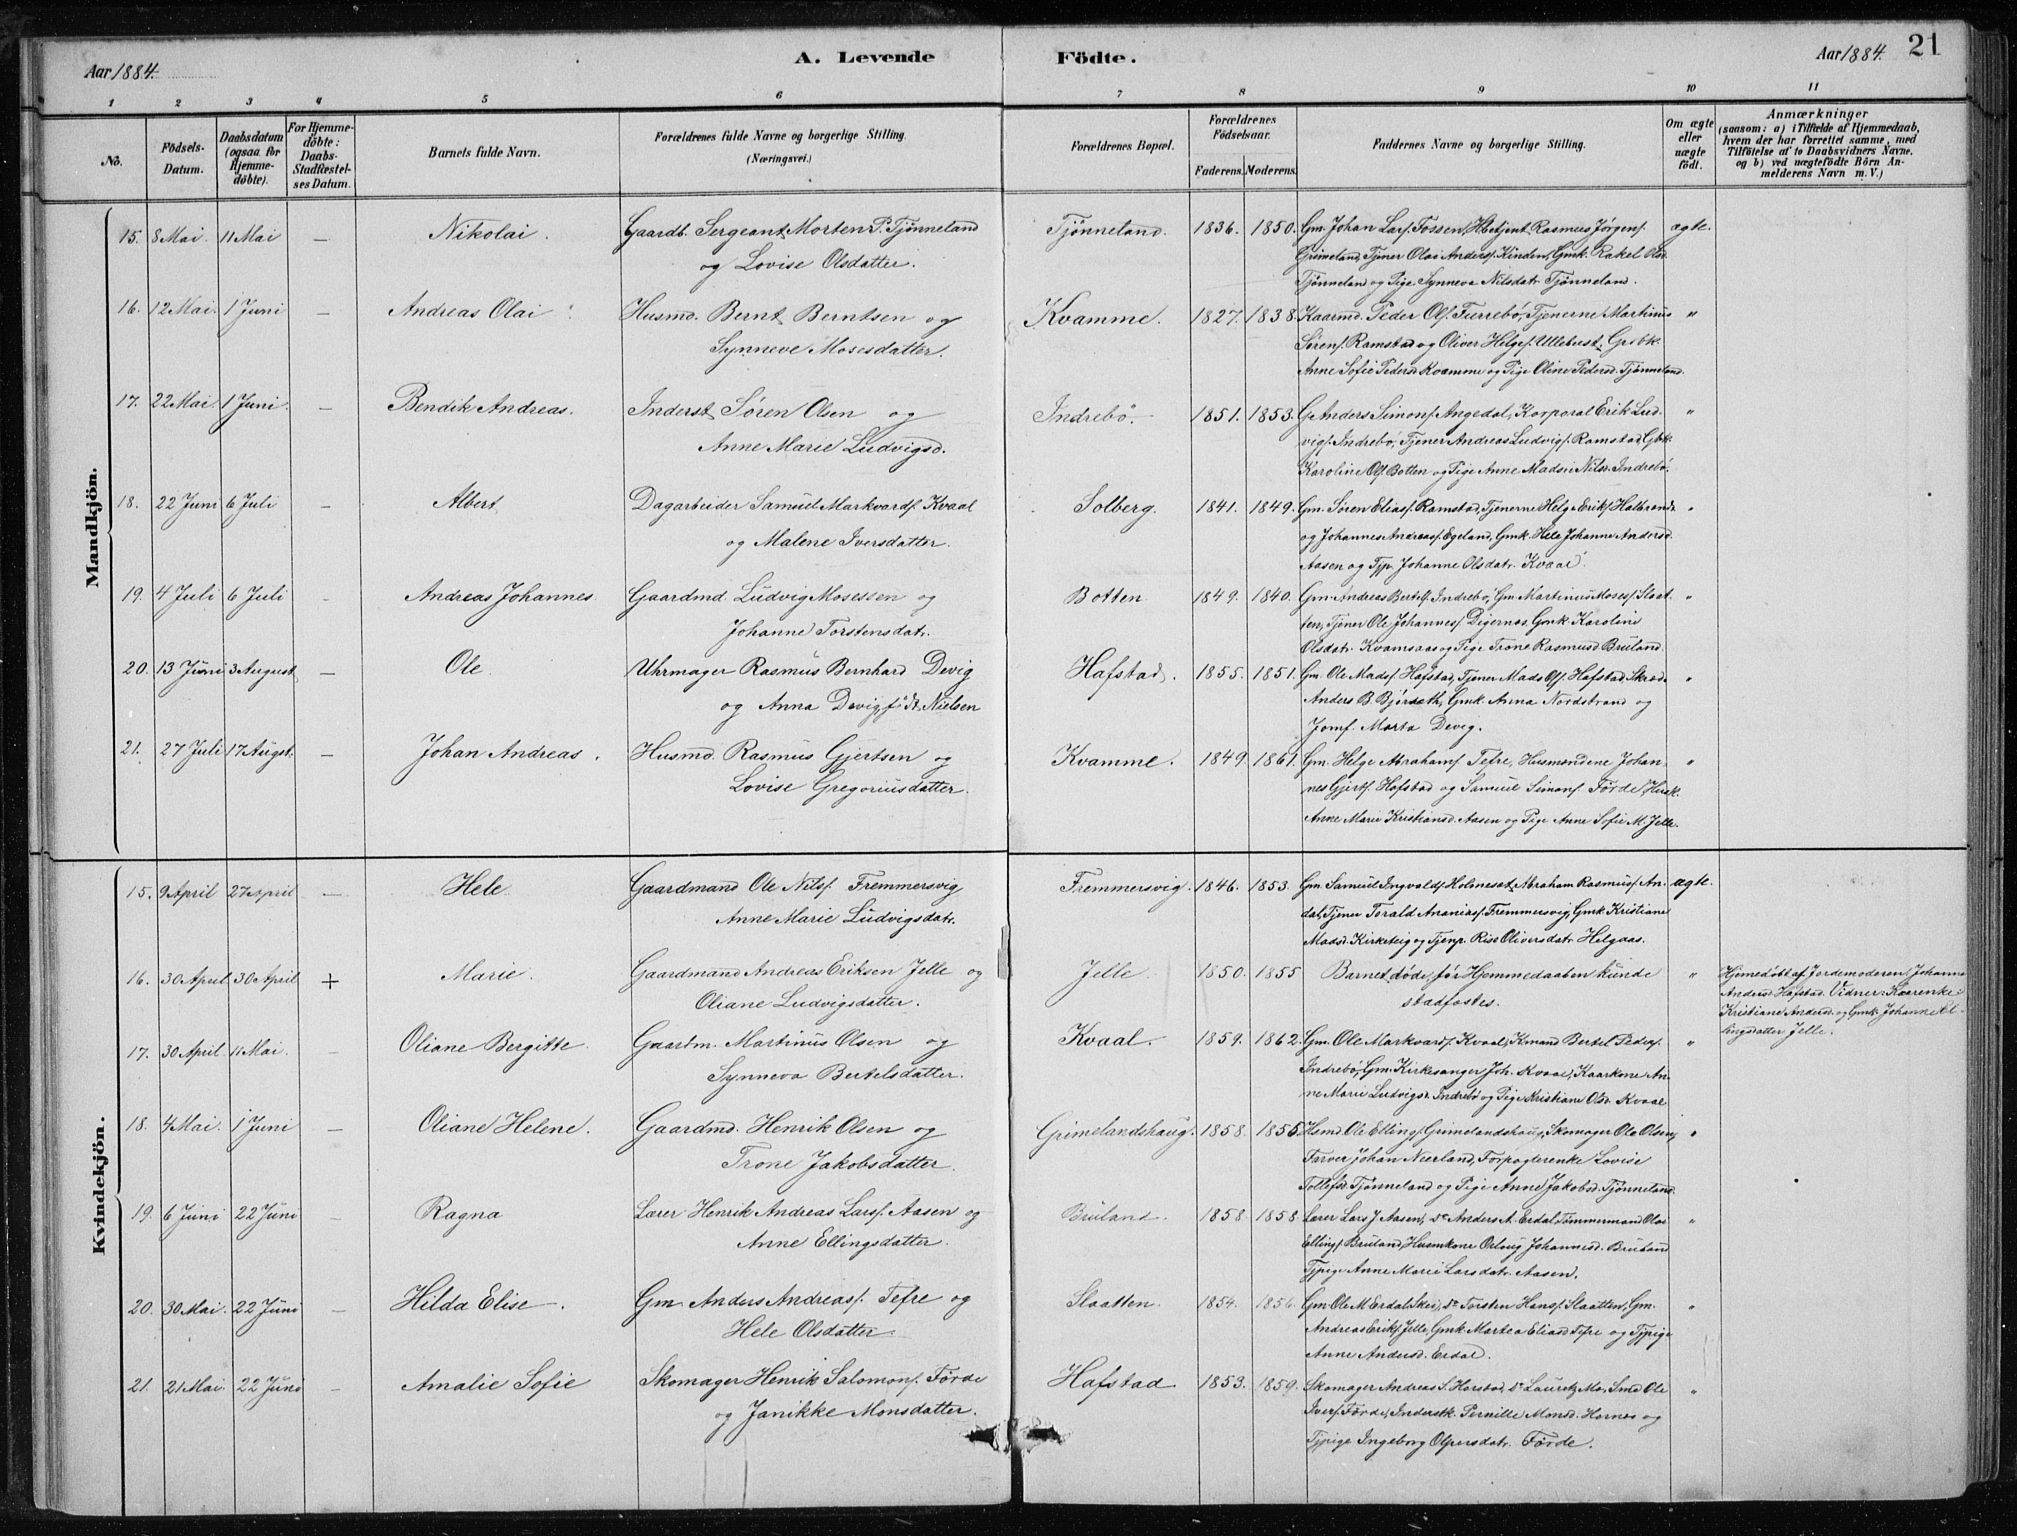 Aar 1884.
A. Levende
Födte.
Aar 1884.
21
1 2 3 4 5 6 7 8 9 10 11
No.
Födsels-
Datum.
Daabsdatum
(ogsaa for
Hjemme-
döbte).
For Hjemme-
döbte:
Daabs-
Stadfæstel-
ses Datum.
Barnets fulde Navn.
Forældrenes fulde Navne og borgerlige Stilling.
(Næringsvei.)
Forældrenes Bopæl.
Forældrenes
Födselsaar.
Faderens. Moderens.
Faddernes Navne og borgerlige Stilling.
Om ægte
eller
uægte
födt.
Anmærkninger
(saasom: a) i Tilfælde af Hjemmedaab,
hvem der har forrettet samme, med
Tilföielse af to Daabsvidners Navne,
og b) ved uægtefödte Börn An-
melderens Navn m. V.)
Mandkjön.
15. 8 Mai. 11 Mai — Nikolai. Gaardb. Sergeant Morten P. Tjønneland
og Lovise Olsdatter.
Tjønneland. 1836. 1850. Gm. Johan Lars. Fossen, Rasmus Jørgens.
Grimeland, Tjener Olai Anders. Hinden, Gmk. Rakel Olsd.
Tjønneland og Pige Synneva Nilsdatr. Tjønneland.
ægte.
16. 12 Mai. 1 Juni — Andreas Olai Husmd. Bernt Berntsen og
Synneve Mosesdatter.
Kvamme. 1827. 1838. Kaarmd. Peder Ols. Furrebø, Tjenerne Martinus
Sørens. Ramstad og Oliver Helges. Ullebust,
Anne Sofie Pedersd. Kvamme og Pige Oline Pedersd. Tjønneland.
"
17. 22 Mai. 1 Juni. — Bendik Andreas. Inderst Søren Olsen og
Anne Marie Ludvigsd.
Indrebö. 1851. 1853. G. Anders Simons. Angedal, Korporal Erik Lud-
vigs. Indrebö, Tjener Andreas Ludvigs. Ramstad, Gmk.
Karoline Ols. Botten og Pige Anne Madsie Nilsd. Indrebö.
"
18. 22 Juni 6 Juli — Albert Dagarbeider Samuel Markvards. Kvaal
og Malene Iversdatter.
Solberg. 1841. 1849. Gm. Søren Elias. Ramstad, Tjenerne Helge Eriks. Halbrend
og Johannes Andreas. Egeland, Gmk. Hele Johanne Andersd.
Aasen og Tjp. Johanne Olsdatr. Kvaal.
"
19. 4 Juli 6 Juli — Andreas Johannes. Gaardmd. Ludvig Mosessen og
Johanne Torstensdatr.
Botten 1849. 1840. Gm. Andreas Bertels. Indrebö, Gm. Martinus Moses. Slaat-
ten, Tjener Ole Johannes. Digernæs, Gmk. Karolini
Olsdatr. Kvamsaas og Pige Trone Rasmusd. Bruland.
"
20. 13 Juni 3 August — Ole. Uhrmager Rasmus Bernhard Devig
og Anna Devig, født Nielsen
Hafstad. 1855. 1851. Gm. Ole Mads. Hafstad, Tjener Mads Ols. Hafstad, Skræd.
Anders B. Gmk. Anna Nordstrand og
Jomf. Marta Devig.
"
21. 27 Juli 17 Augst. — Johan Andreas. Husmd. Rasmus Gjertsen og
Lovise Gregoriusdatter.
Kvamme. 1849. 1861. Gm. Helge Abrahams. Tefre, Husmændene Johan-
nes Gjerts. Hafstad og Samuel Simons. Førde, Husk.
Anne Marie Kristiansd. Aasen og Pige Anne Sofie M. Jelle.
"
Kvindekjön.
15. 9 April 27 April — Hele Gaardmand Ole Nils. Fremmersvig
Anne Marie Ludvigsdatr.
Fremmersvig. 1846. 1853. Gm. Samuel Ingvalds. Holmeset, Abraham Rasmus. An-
dal, Tjener Torald Ananias. Fremmersvig, Gmk. Kristiane
Madsd. Kirketeig og Tjenp. Rise Oliversdatr. Helgaas.
ægte.
16. 30 April 30 April + Marie. Gaardmand Andreas Eriksen Jelle og
Oliane Ludvigsdatter.
Jelle. 1850. 1855 Barnet døde, før Hjemmedaaben kunde
stadfæstes.
"
Hjemedöbt af Jordemoderen Johanne
Andersd. Hafstad. Vidner: Kaarenke
Kristiane Andersd. og Gmk. Johanne El-
lingsdatter Jelle.
17. 30 April. 11 Mai. — Oliane Bergitte. Gaardm. Martinus Olsen og
Synneva Bertelsdatter.
Kvaal. 1859. 1862. Gm. Ole Markvards. Kvaal, Kmand Bertel Peders.
Indrebö, Gm. Kirkesanger Joh. Kvaal, Kaarkone An-
ne Marie Ludvigsd. Indrebö og Pige Kristiane Olsd. Kvaal
"
18. 4 Mai. 1 Juni — Oliane Helene. Gaardmd. Henrik Olsen og
Trone Jakobsdatter.
Grimelandshaug. 1858. 1855 Hsmd. Ole Ellings. Grimelandshaug, Skomager Ole Olsen,
Farver Johan Neerland, Forpagterenke Lovise
Tollefsd. Tjønneland og Pige Anne Jakobsd. Tjønneland.
"
19. 6 Juni 22 Juni — Ragna Lærer Henrik Andreas Lars. Aasen og
Anne Ellingsdatter.
Bruland. 1858. 1858. Lærer Lars J. Aasen, do Anders A. Erdal, Tømmermand Olai
Ellings. Bruland, Huskone Oslaug Johannesd. Bruland
Tjpige Anne Marie Larsdatr. Aasen.
"
20. 30 Mai. 22 Juni — Hilda Elise. Gm Anders Andreas. Tefre og
Hele Olsdatter.
Slaatten. 1854. 1856. Gm. Ole M. Erdal, do Torsten Hans. Slaatten, Gm.
Andreas Eriks. Jelle, Gmk. Martea Eliasd. Tefre og Tjpige
Anne Andersd. Erdal.
"
21. 21 Mai. 22 Juni — Amalie Sofie Skomager Henrik Salomons. Førde
og Janikke Monsdatter.
Hafstad 1853. 1859. Skomager Andreas S. Harstad, do Lauretz Mo, Smd Ole
Ivers. Førde, Inderstk. Pernille Monsd. Hornæs og
Tjpige Ingeborg Olpersdatr. Førde.
"